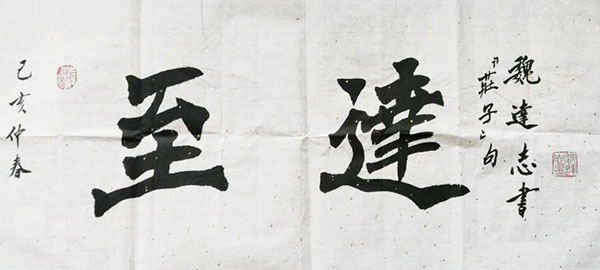 魏達志書
『莊子』句
達至
己亥仲春